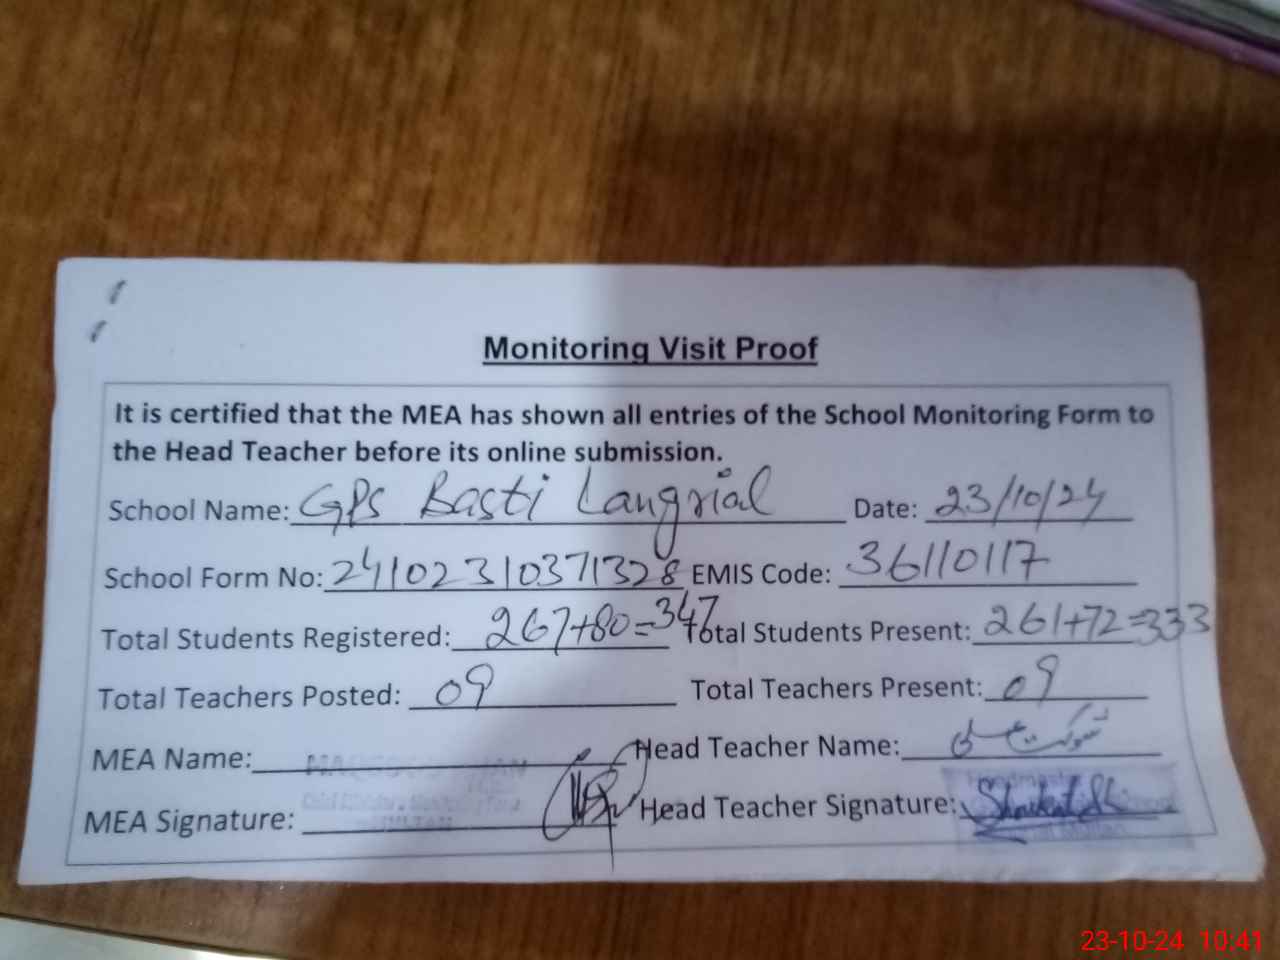 Monitoring Visit Proof
It is certified that the MEA has shown all entries of the School Monitoring Form to
the Head Teacher before its online submission.
School Name: GPS Basti Langrial Date: 23/10/24
School Form No: 24102310371328 EMIS Code: 36110117
Total Students Registered: 267+80=347 Total Students Present: 261+72=333
Total Teachers Posted: 09 Total Teachers Present: 09
MEA Name: Head Teacher Name: شوکت علی
MEA Signature: Head Teacher Signature:
23-10-24 10:41